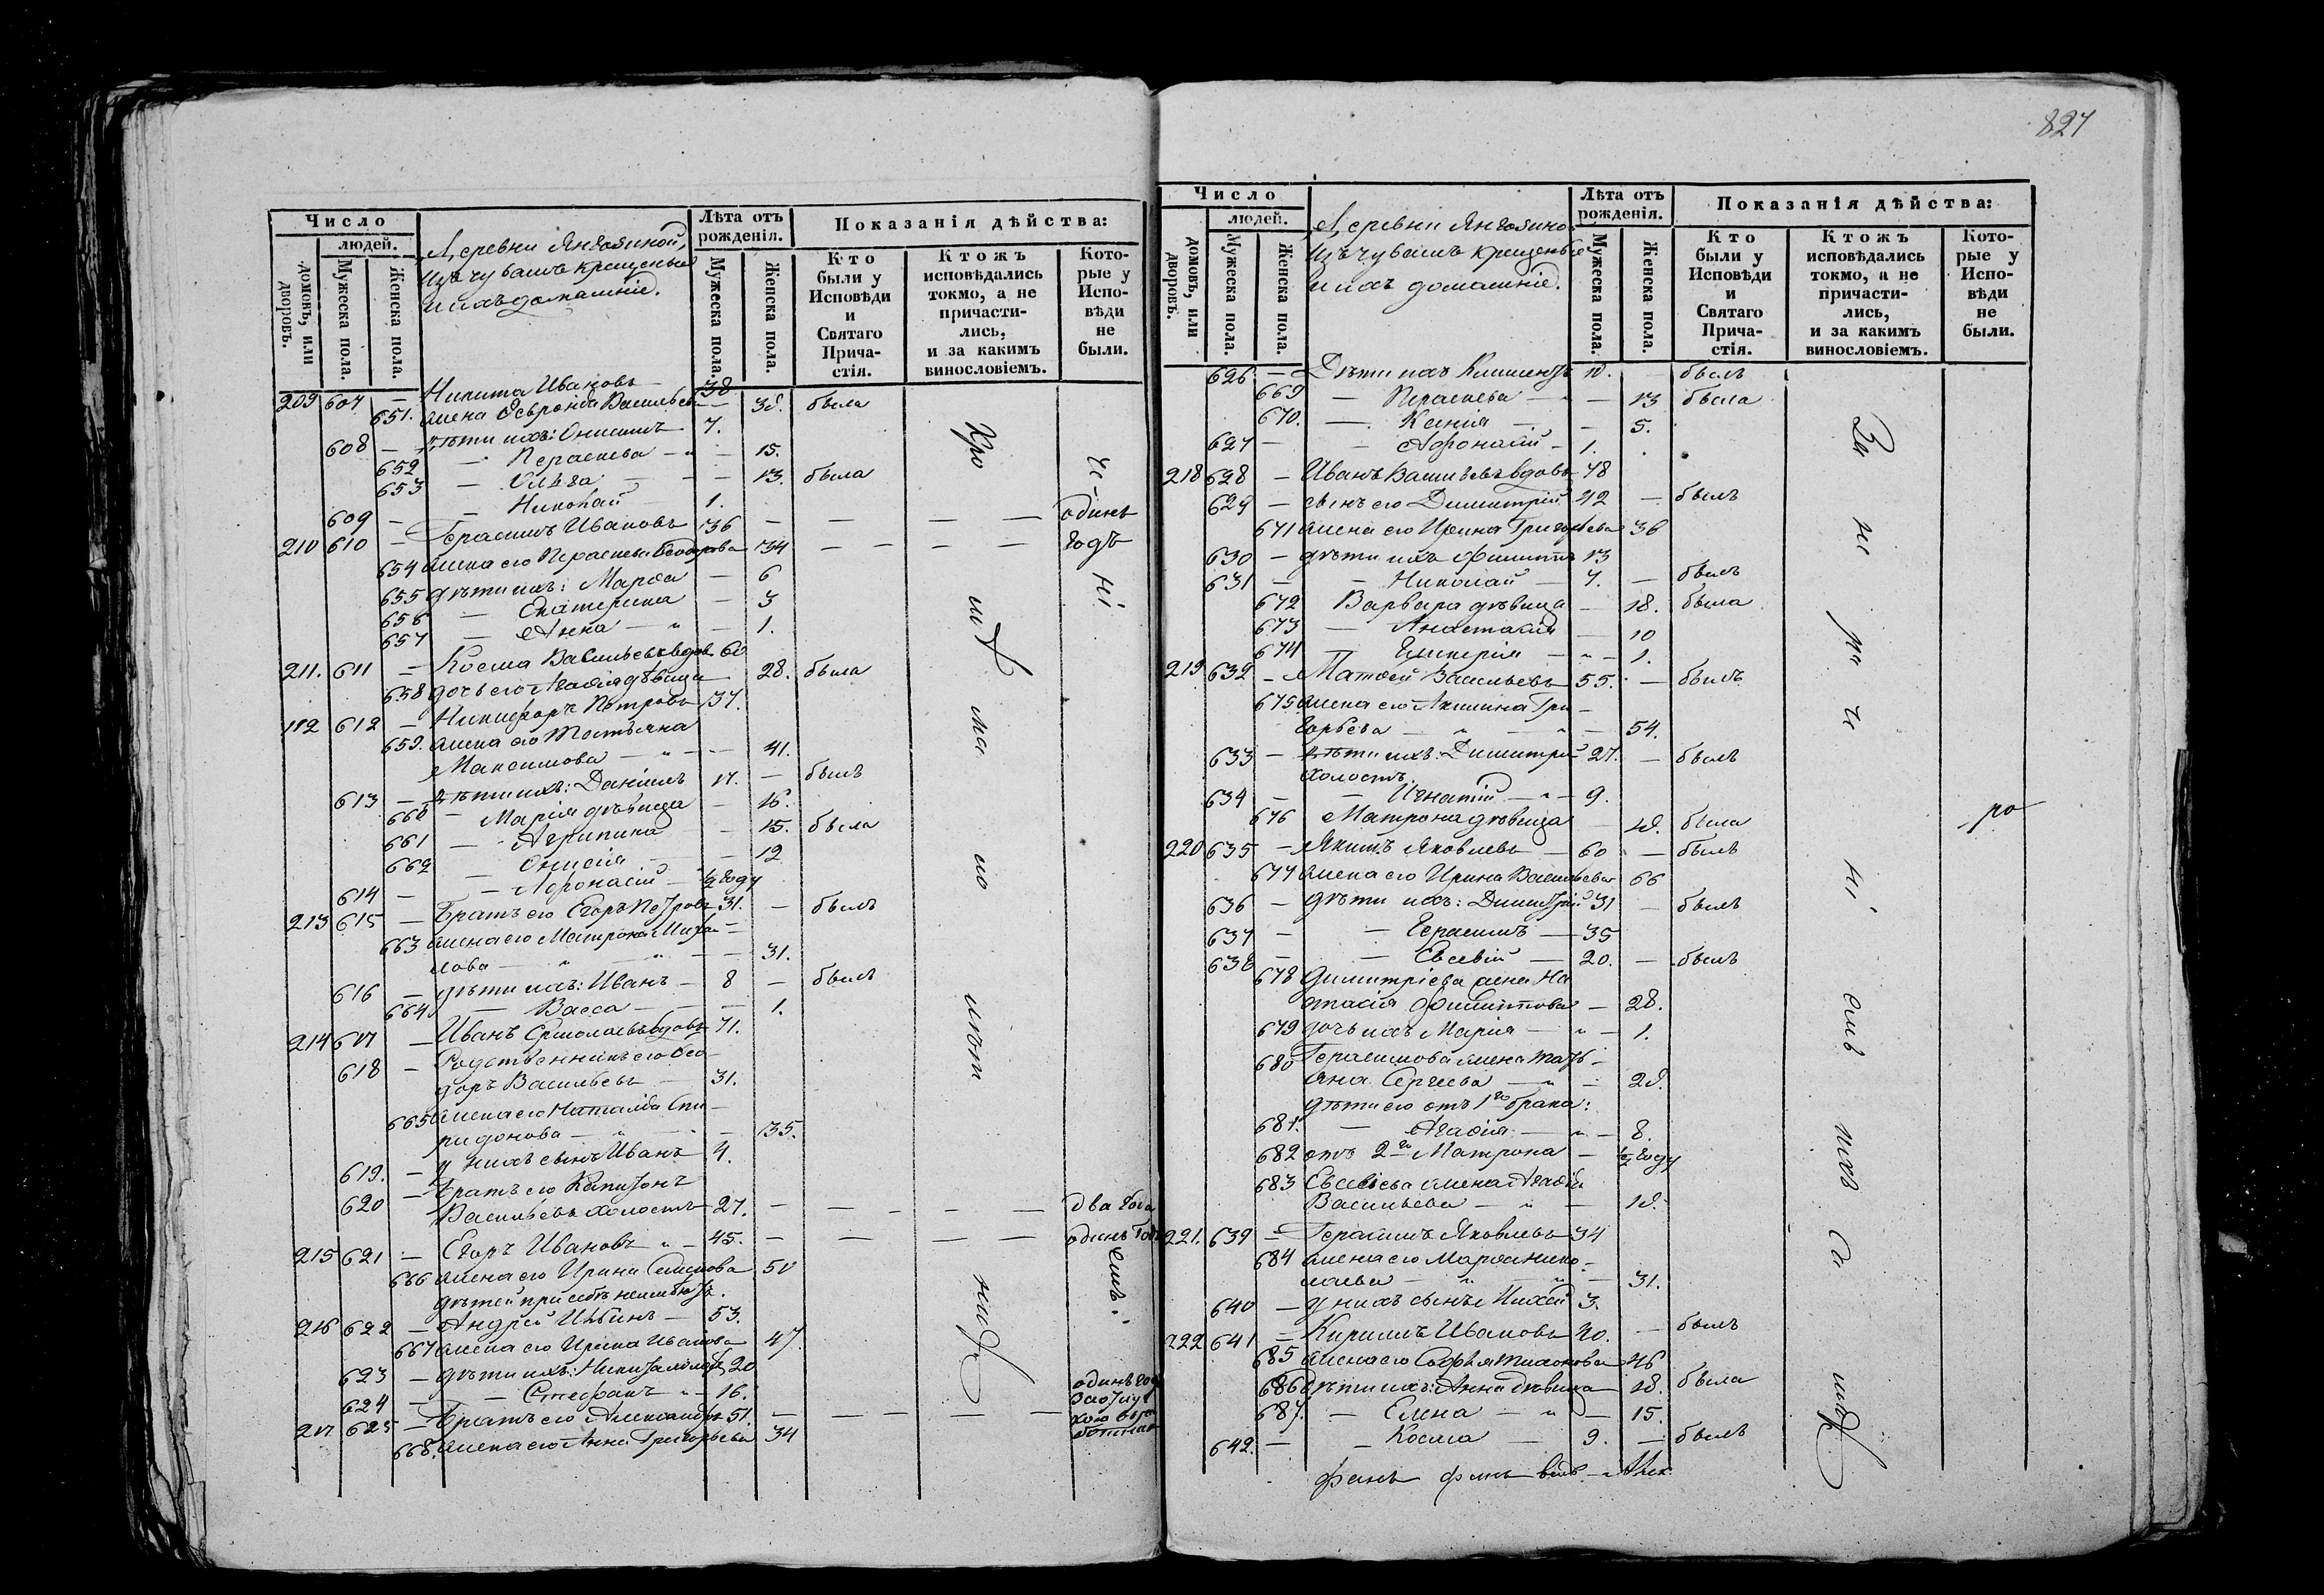 827
Число
людей.
домовъ, или дворовъ.
Мужеска пола.
Женска пола.
Деревни Янгозиной,
Изъ чувашъ крещеные
и ихъ домашніе.
Лѣта отъ рожденія.
Мужеска пола.
Женска пола.
Показанія дѣйства:
Кто были у Исповѣди и Святаго Прича-стія.
Ктожъ исповѣдались токмо, а не причасти-лись, и за какимъ винословіемъ.
Кото-рые у Испо-вѣди не были.
209 607 — Никита Ивановъ — 38
651. жена Февронія Васильева — 38. была
608 — дѣти ихъ: Онисимъ 7.
652 — Параскева — 15.
653 — Ольга — 13. была
609 — Николай 1.
210 610 — Герасимъ Ивановъ 36 — — — — одинъ годъ
654 жена его Параскева Ѳеодорова 34 — — — —
655 дѣти ихъ: Марѳа — 6
656 — Екатерина — 3
657 — Анна — 1.
211. 611 — Косма Васильевъ вдовъ 60
658 дочь его Агафія дѣвица 28. была
112 612 — Никифоръ Петровъ 37.
659. жена его Татьяна
Максимова — 41.
613 — дѣти ихъ: Даніилъ 17. — былъ
660 — Марія дѣвица — 16.
661 — Агрипина — 15. была
662 — Онисія — 12
614 — — Афонасій — ½ году
213 615 — Братъ его Егоръ Петровъ 31. — былъ
663 жена его Матрона Михай-
лова — 31.
616 — дѣти ихъ: Иванъ — 8 — былъ
664 — Васса — 1.
214 617 — Иванъ Ермолаевъ вдовъ 71.
618 — Родственникъ его Ѳео-
доръ Васильевъ — 31.
665 жена его Наталія Спи-
ридонова — 35.
619. — у нихъ сынъ Иванъ 4.
620 — братъ его Капитонъ
Васильевъ холостъ 27. — — — — — два года
215 621 — Егоръ Ивановъ — 45. — — — — одинъ годъ
666 жена его Ирина Семенова 50
дѣтей при себѣ неимѣютъ.
216 622 — Андрей Ильинъ — 53.
667 жена его Ирина Иванова 47.
623 — дѣти ихъ: Никита холостъ 20
624 — — Стефанъ — 16.
217 625 — Братъ его Александръ 51. — — — — —
668. жена его Анна Григорьева 34
Число
людей.
домовъ, или дворовъ.
Мужеска пола.
Женска пола.
Деревни Янгозино
Изъ чувашъ крещеные
и ихъ домашніе.
Лѣта отъ рожденія.
Мужеска пола.
Женска пола.
Показанія дѣйства:
Кто были у Исповѣди и Святаго Прича-стія.
Ктожъ исповѣдались токмо, а не причасти-лись, и за какимъ винословіемъ.
Кото-рые у Испо-вѣди не были.
626 — Дѣти ихъ Климентъ 10. — былъ
669 — Параскева — 13 была
670. — Ксенія — 5.
627 — — Афонасій — 1.
218 628 — Иванъ Васильевъ вдовъ 78
629 — сынъ его Димитрій 42 — былъ
671 жена его Ирина Григорьева 36
630 — дѣти ихъ Филиппъ 13
631 — — Николай — 7. — былъ
672 Варвара дѣвица — 18. была
673 — Анастасія — 10
674 — Гликерія — 1.
219 632 — Матѳей Васильевъ 55. — былъ
675 жена его Акилина Гри-
горьева — 54.
633 — дѣти ихъ: Димитрій 27. — былъ
холостъ.
634 — — Игнатій — 9.
676 Матрона дѣвица — 18. была
220 635 — Якимъ Яковлевъ — 60 — былъ
677 жена его Ирина Васильева 66
636 — дѣти ихъ: Димитрій 31 — былъ
637 — — Герасимъ — 35
638 — — Евсевій — 20. — былъ
678 Димитріева жена На
стасія Филиппова — 28.
679 дочь ихъ Марія — 1.
680 Герасимова жена Тать-
яна Сергеева — 28.
дѣти его отъ 1го брака:
681. — Агафія — 8.
682 отъ 2го Матрона — ½ году
683 Евсевіева жена Агафія
Васильева — 18.
221. 639 — Герасимъ Яковлевъ 34
684 жена его Марѳа Нико-
лаева — 31.
640 — у нихъ сынъ Михай 3.
222 641 — Кирилъ Ивановъ 40. — былъ
685 жена его Софья Тихонова 46
686 дѣти ихъ: Анна дѣвица 18. была
687. — Елена — 15.
642. — — Косма — 9. — былъ